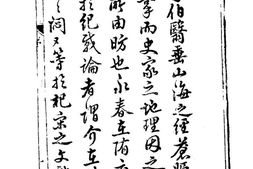 伯醫垂山海之經蒼
掌而史家之地理因之
所由昉也永春在隋
於紀載論者謂介在
洞又等於杞宋之文